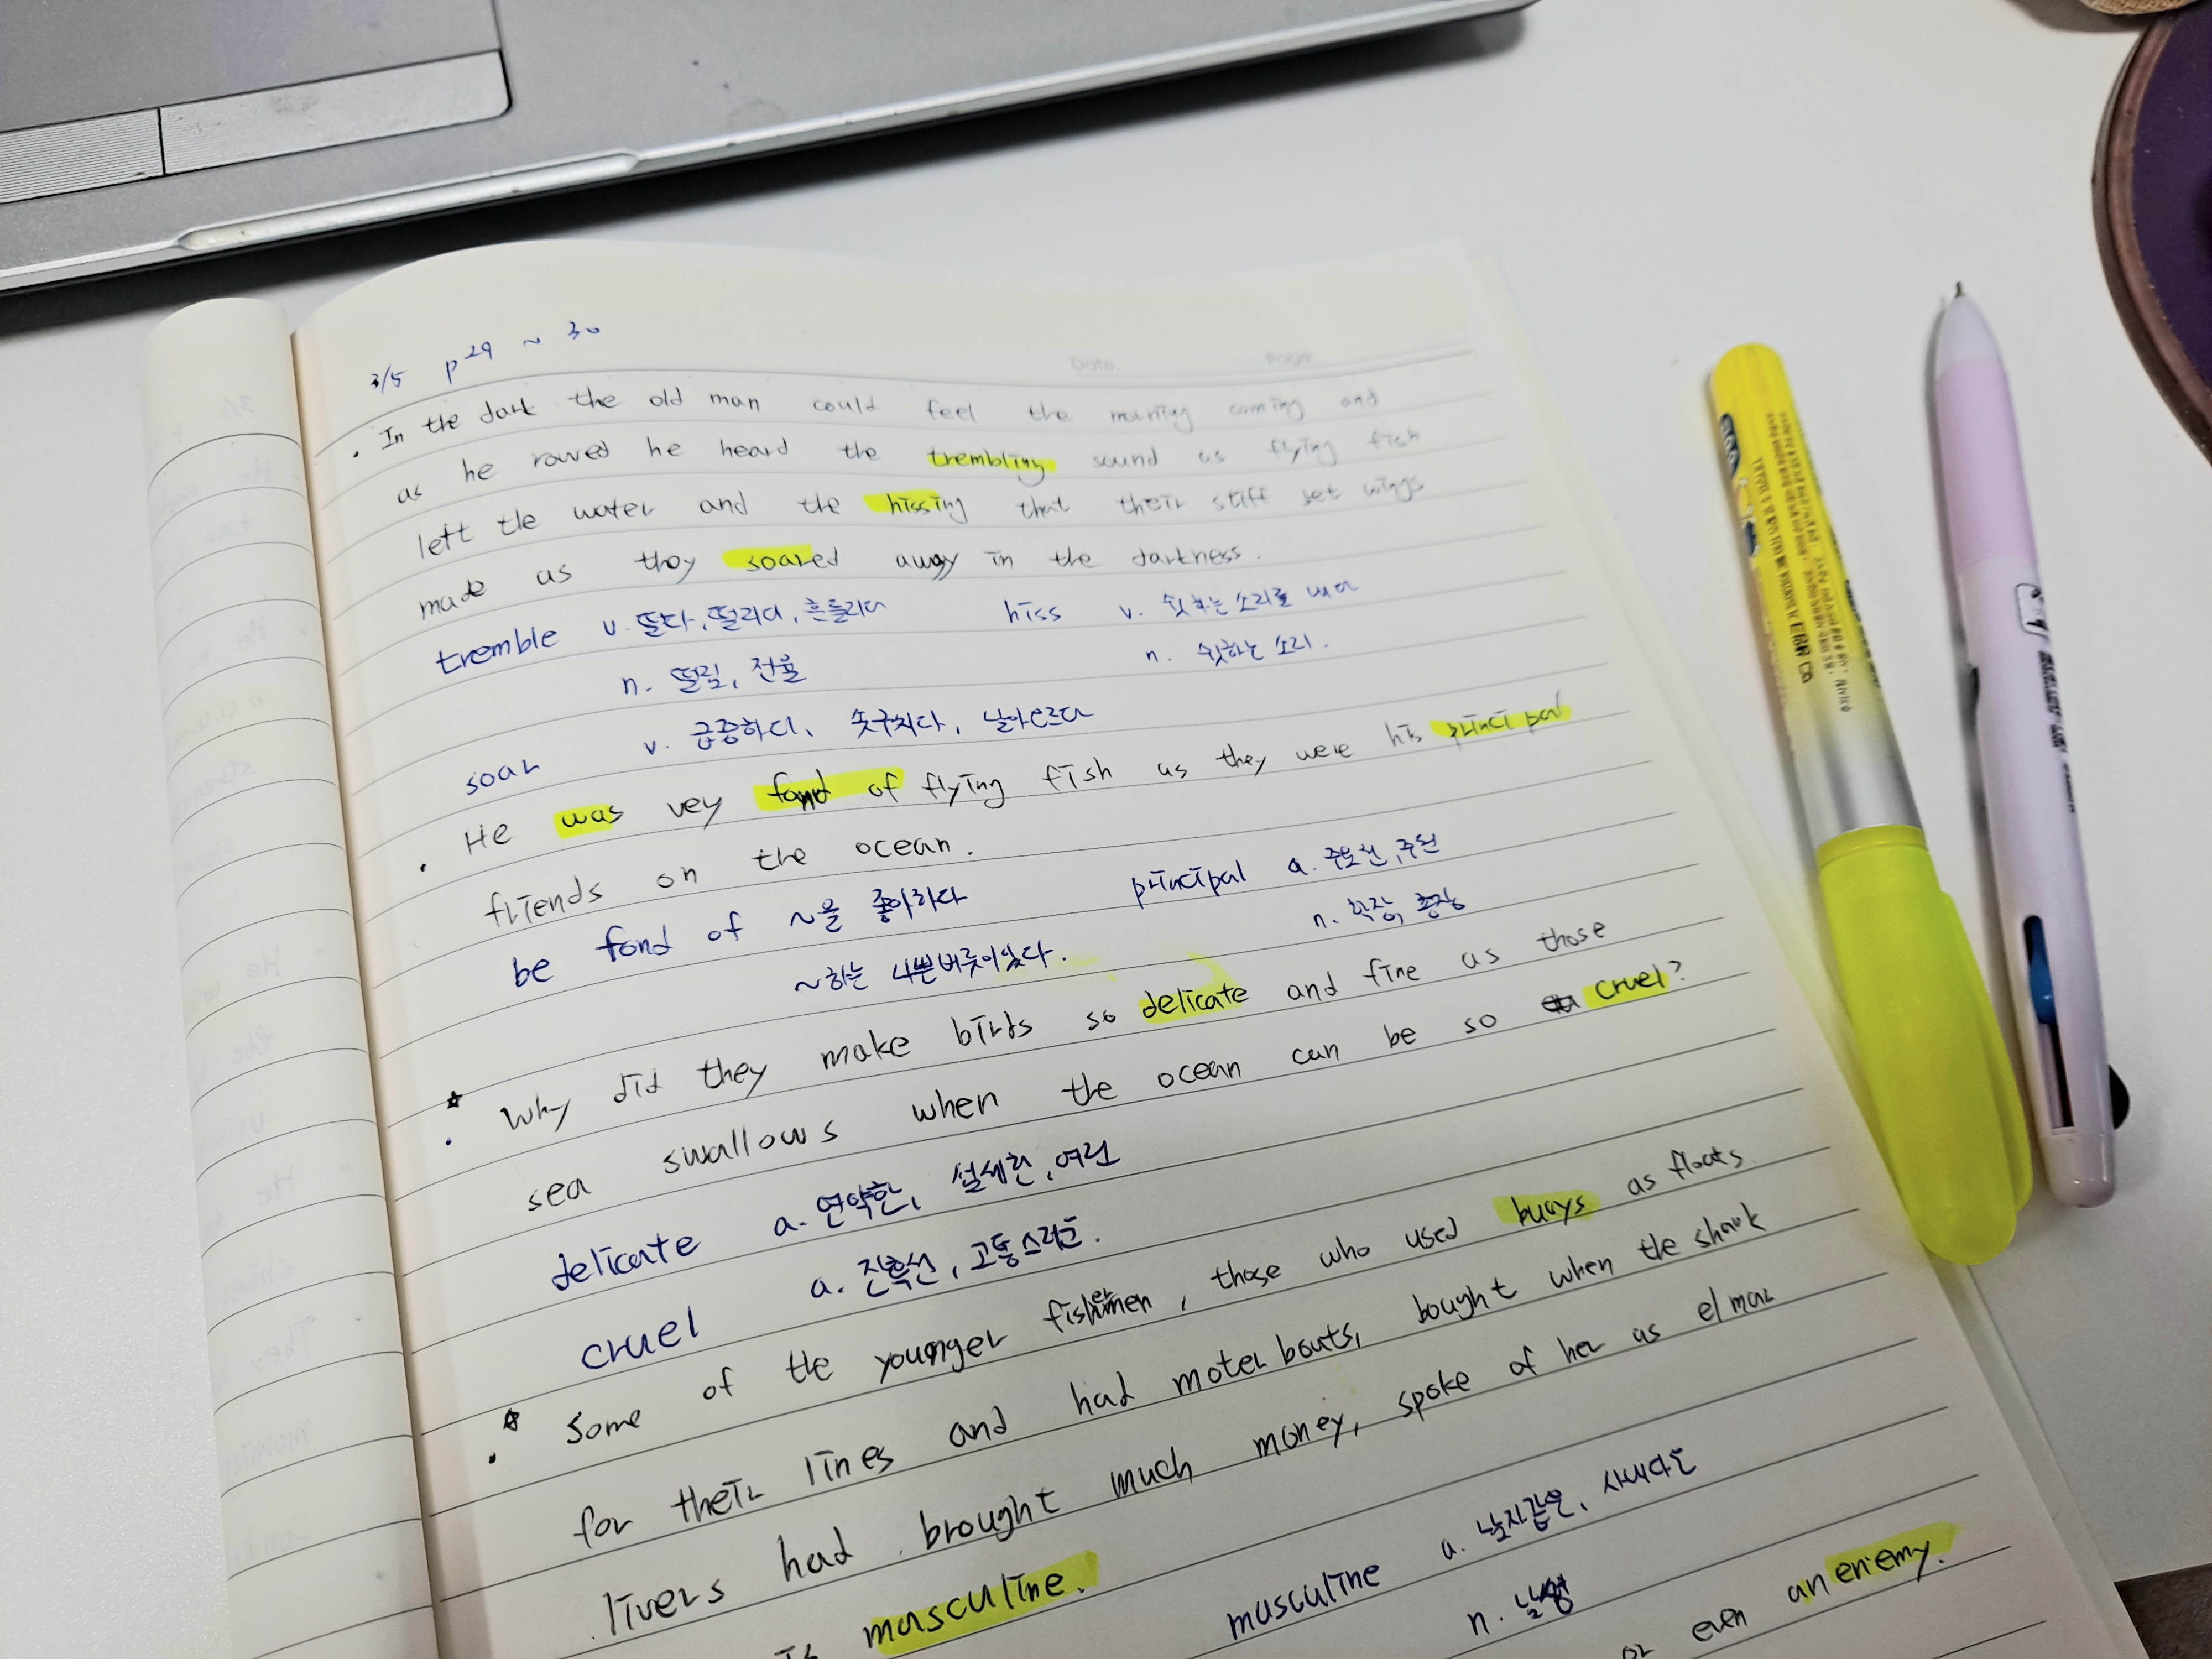 3/5 p29 ~ 30
Date Page
· In the dark the old man could feel the morning coming and
as he rowed he heard the trembling sound as flying fish
left the water and the hissing that their stiff set wings
made as they soared away in the darkness.
tremble v. 떨다, 떨리다, 흔들리다 hiss v. 쉿하는 소리를 내다
n. 떨림, 전율 n. 쉿하는 소리.
soar v. 급증하다, 솟구치다, 날아오르다
· He was vey fond of flying fish as they were his principal
friends on the ocean.
be fond of ~을 좋아하다 principal a. 주요한, 주된
~하는 나쁜버릇이있다. n. 학장, 총장
· Why did they make birds so delicate and fine as those
sea swallows when the ocean can be so cruel?
delicate a. 연약한, 섬세한, 여린
cruel a. 잔혹한, 고통스러운.
· Some of the younger fishermen, those who used buoys as floats
for their lines and had moter boats, bought when the shark
livers had brought much money, spoke of her as el mar
is masculine. masculine a. 남자같은, 사내다운
n. 남성
or even an enemy.